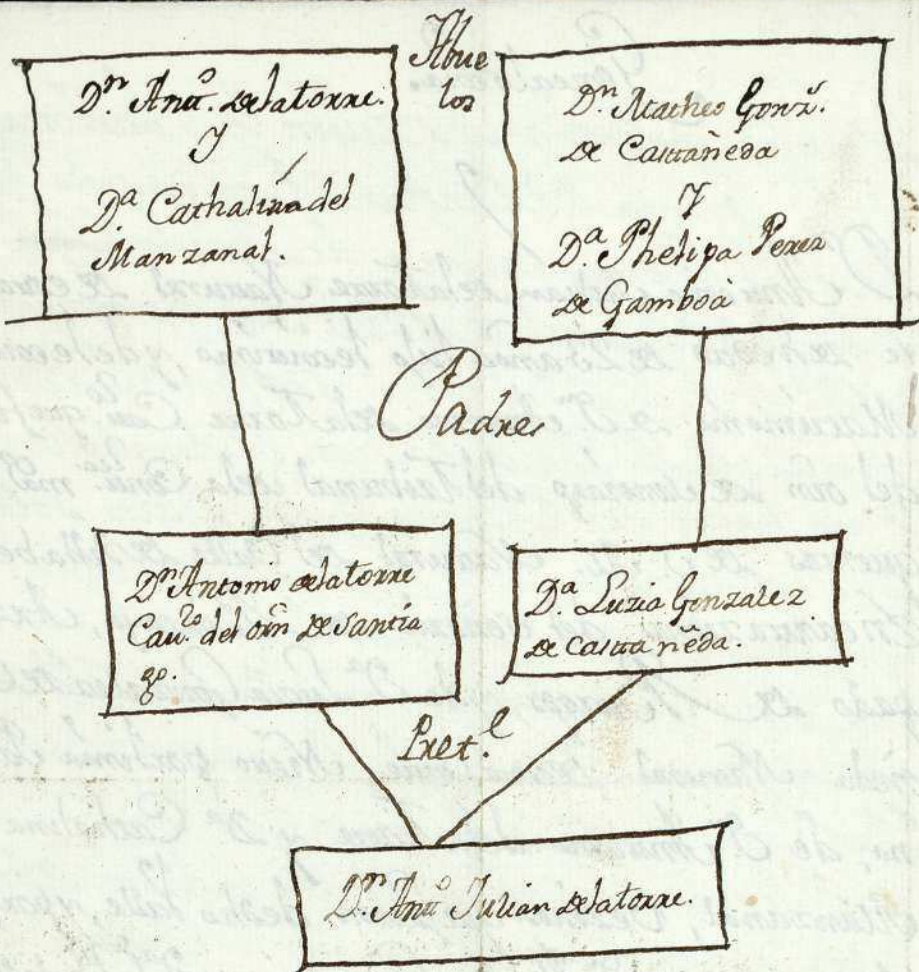 Abue
los
Dⁿ. Antº. delatorre.
y
Dª. Cathalina del
Manzanal.
Dⁿ. Matheo Gonz.
de Castañeda
y
Dª. Phelipa Perez
de Gamboà
Padres
Dⁿ Antonio delatorre
Cauº. del orñ de Santia
go.
Dª. Luzia Gonzalez
de Castañeda.
Pret.e
Dⁿ. Antº Julian delatorre.